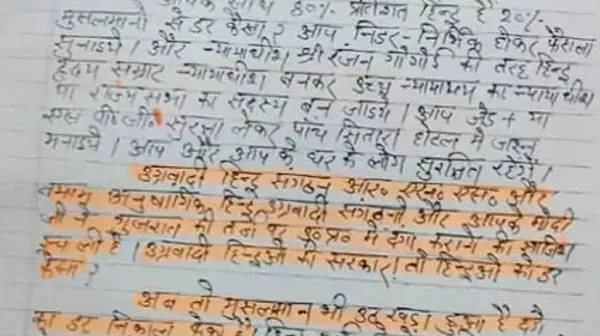 आपके साथ 80% प्रतिशत हिन्दू है 20%
मुसलमानो से डर कैसा? आप निडर-निर्भिक होकर फैसला
सुनाइये। और न्यायाधीश श्री रंजन गोगोई की तरह हिन्दू
हृदय सम्राट न्यायाधीश बनकर उच्च न्यायालय का न्यायाधीश
या राज्य सभा का सदस्य बन जाइये। आप जेड + या
एस० पी०जी० सुरक्षा लेकर पांच सितारा होटल मे जश्न
मनाइये। आप और आप के घर के लोग सुरक्षित रहेंगे।
उग्रवादी हिन्दू संगठन आर० एस० एस० और
तमाम अनुषांगिक हिन्दू उग्रवादी संगठनो और आपके मोदी
जी ने गुजरात की तर्ज पर उ०प्र० मे दंगा कराने की साजिश
रच ली है। उग्रवादी हिन्दुओ की सरकार! तो हिन्दुओ को डर
कैसा?
अब तो मुसलमान भी उठ खड़ा हुआ है दो
का डर निकाल फेंका है।